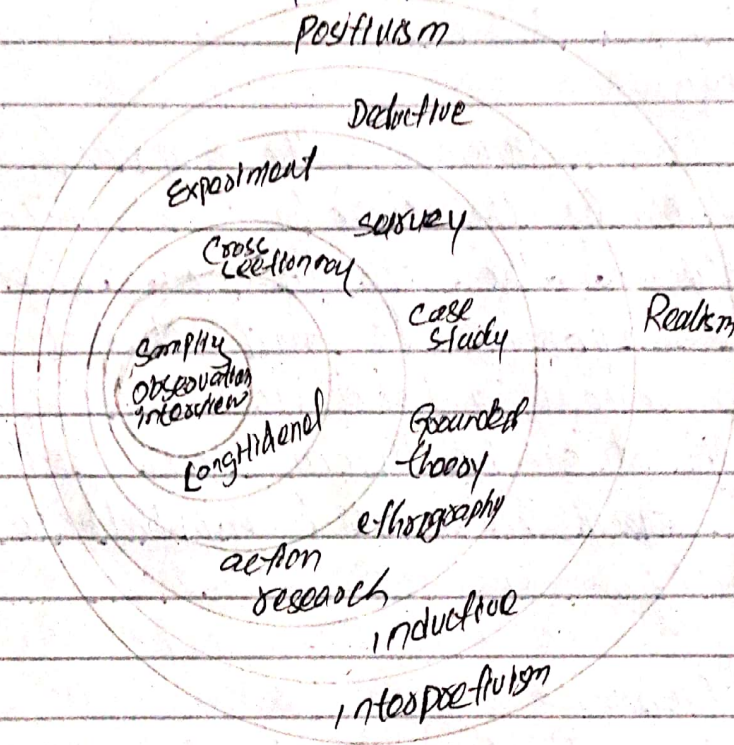 Positivism
Deductive
Experiment
survey
Cross
sectional
case
study
Realism
Sampling
observation
interview
Longitidenal
Grounded
theory
ethnography
action
research
inductive
interpretivism